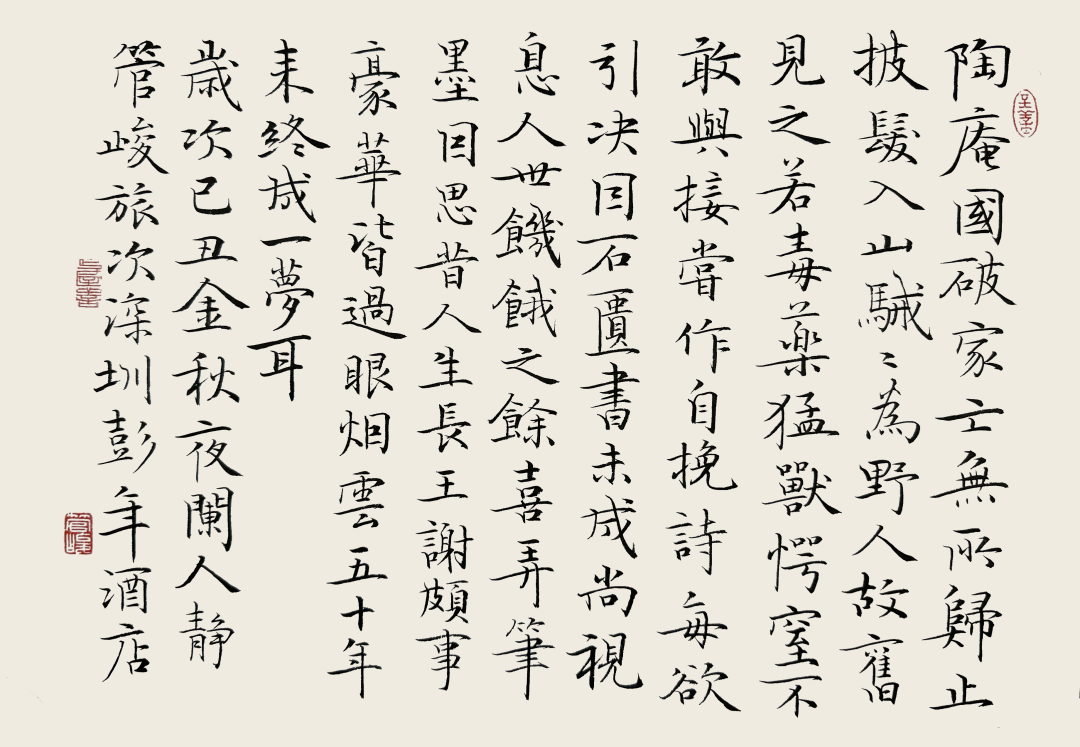 陶庵國破家亡無所歸止
披髮入山駴〻為野人故舊
見之若毒藥猛獸愕窒不
敢與接嘗作自挽詩每欲
引决因石匱書未成尚視
息人世饑餓之餘喜弄筆
墨因思昔人生長王謝頗事
豪華皆過眼烟雲五十年
来終成一夢耳
歲次己丑金秋夜闌人靜
管峻旅次深圳彭年酒店
管峻